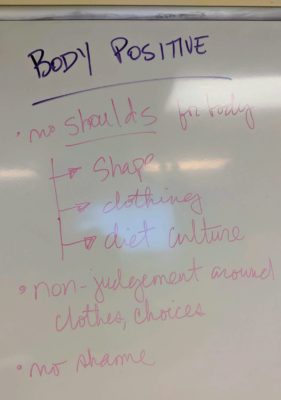 BODY POSITIVE
• no shoulds for body
shape
clothing
diet culture
• non-judgement around
clothes, choices
• no shame